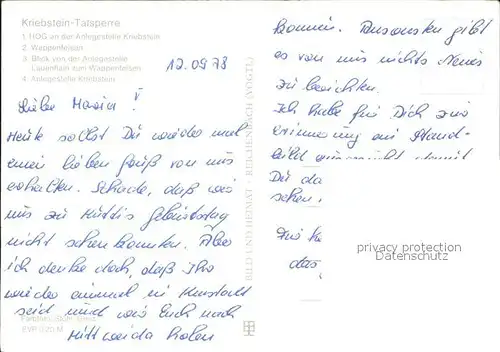 Kriebstein-Talsperre
1. HOG an der Anlegestelle Kriebstein
2. Wappenfelsen
3. Blick von der Anlegestelle
Lauenhain zum Wappenfelsen
4. Anlegestelle Kriebstein
12.09.78
Liebe Maria!
Heute sollst Du wieder mal
einen lieben Gruß von uns
erhalten. Schade, daß wir
uns zu Muttis Geburtstag
nicht sehen konnten. Aber
ich denke doch, daß Ihr
wieder einmal in
seid und wir Euch nach
Mittweida holen
EVP 0,20 M
BILD UND HEIMAT REICHENBACH (VOGTL)
können. Ansonsten gibt
es von uns nichts Neues
zu berichten.
Ich habe für Dich zur
Erinnerung ein Stand-
bild
Du da
sehen
das,
privacy protection
Datenschutz